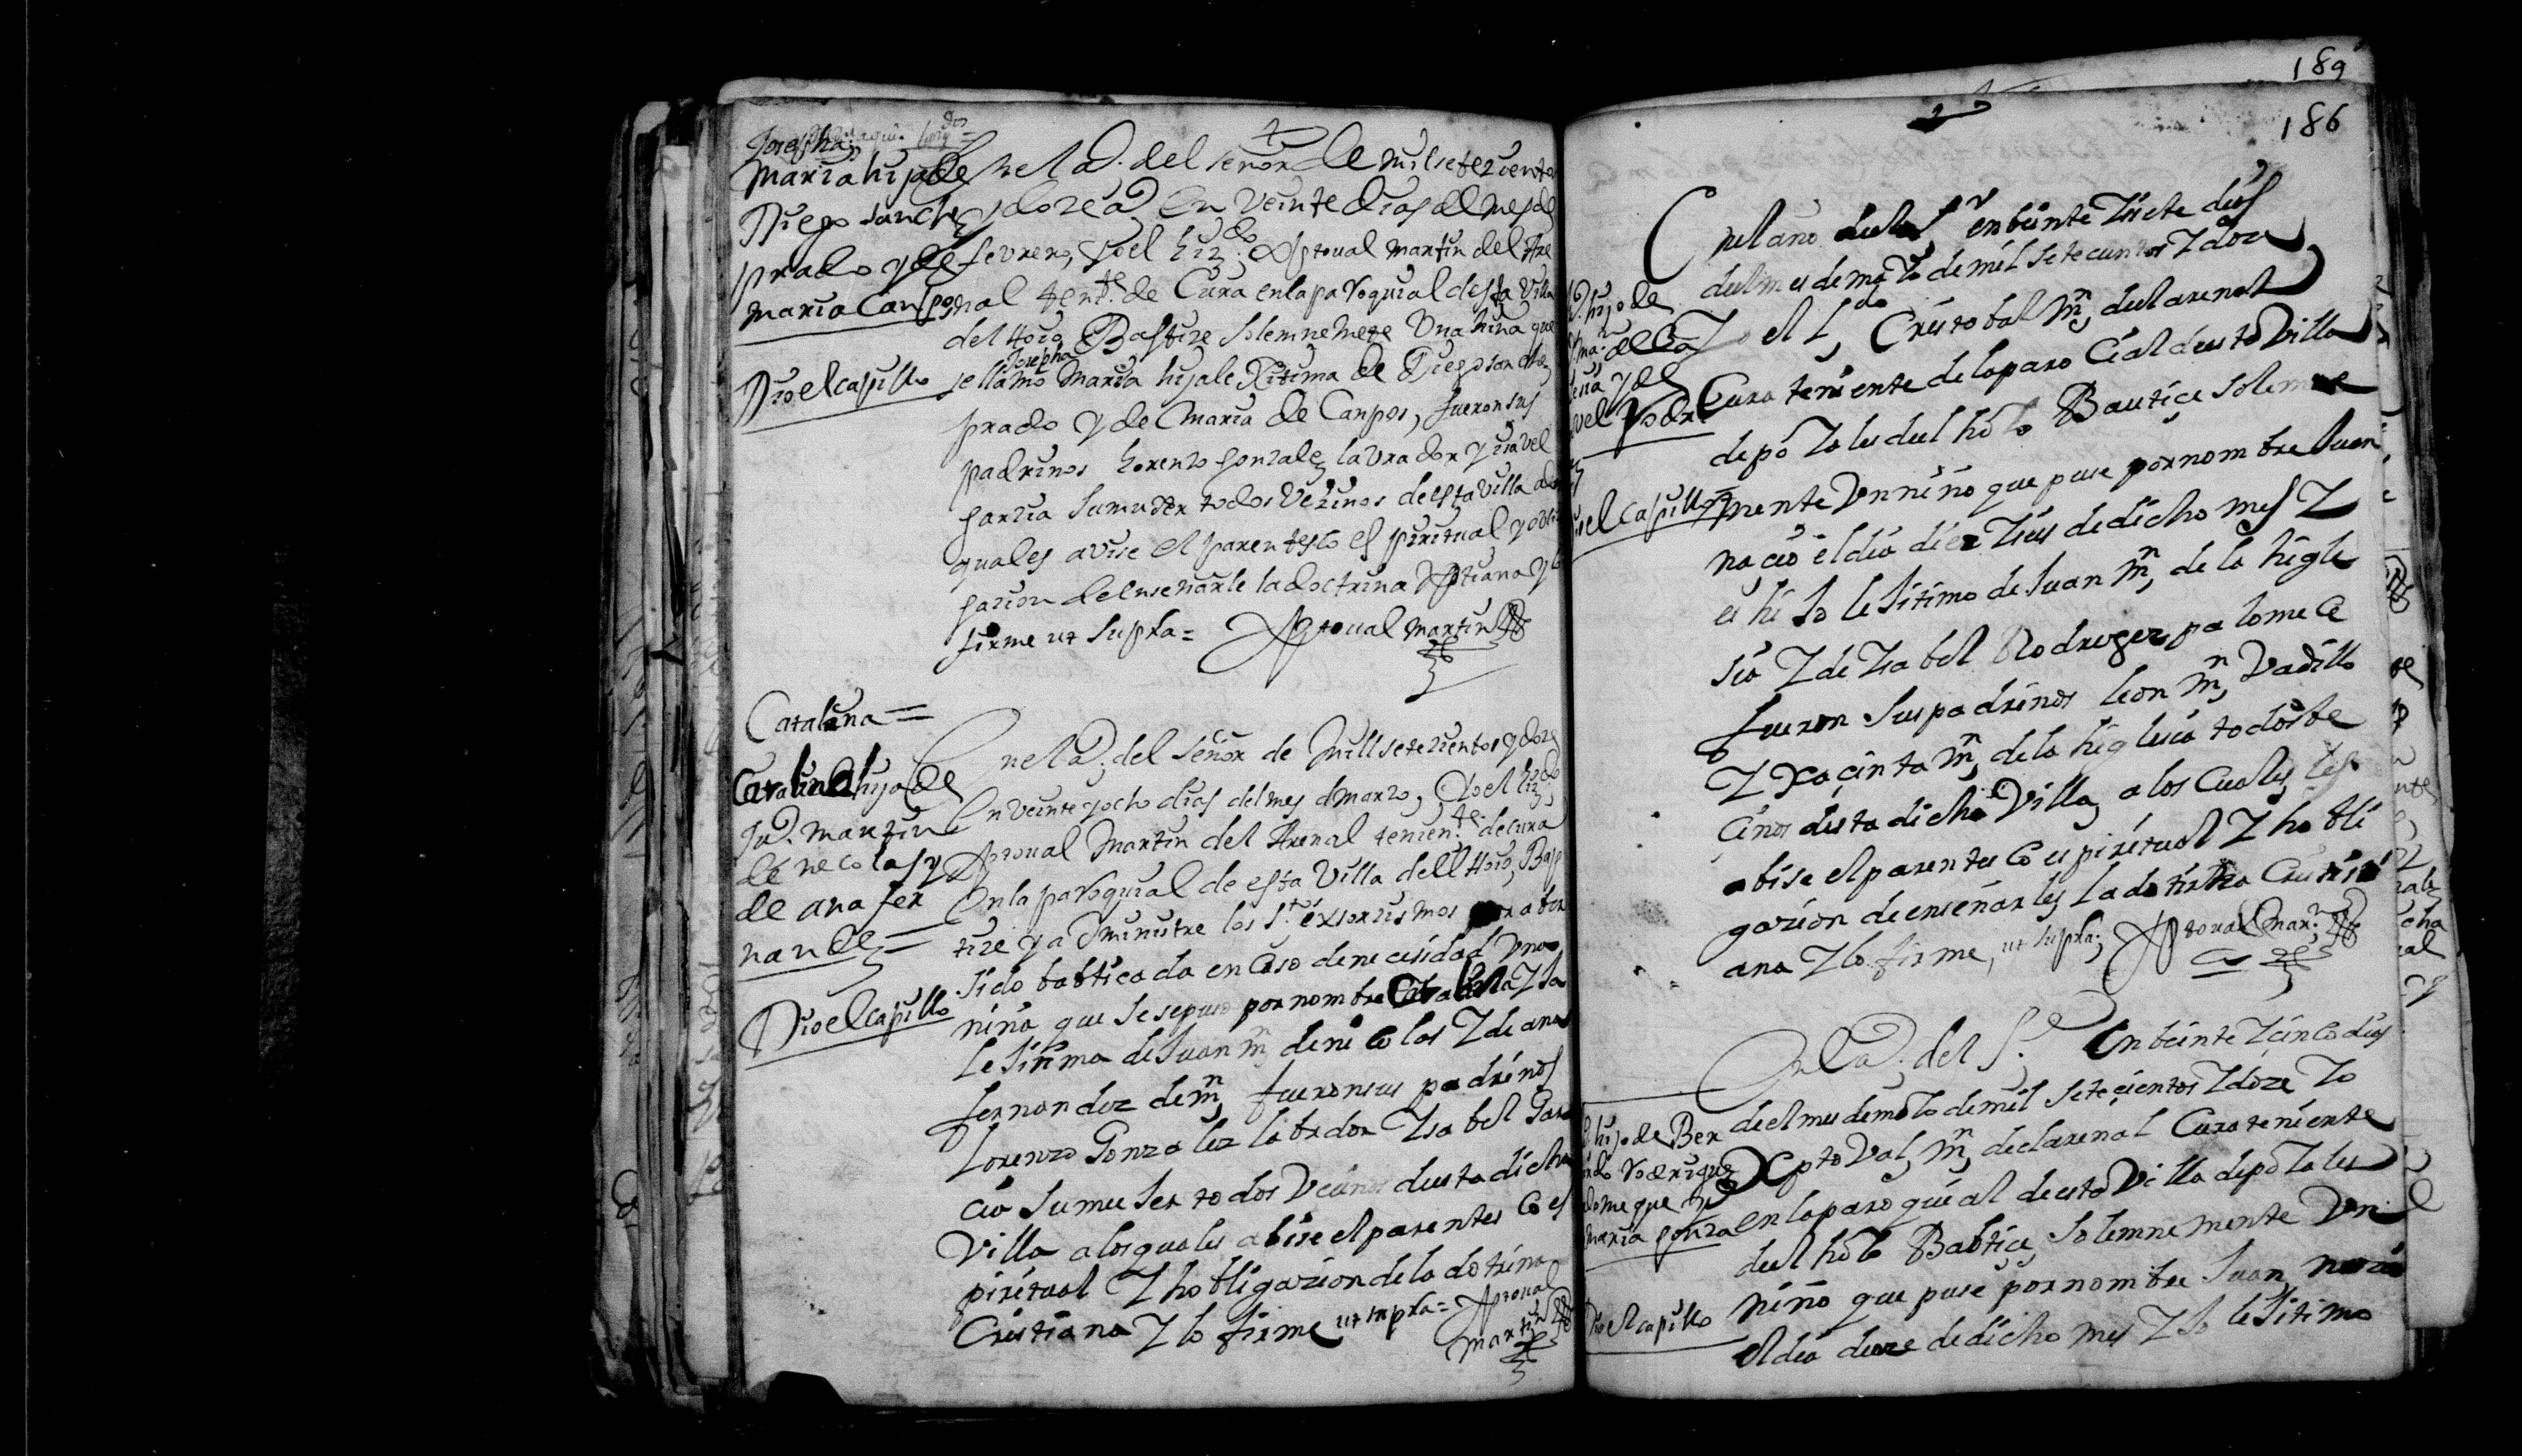 Josepha
Maria hija de
Diego sanchez
prado y de
maria Campos
Dio el capillo
En el a.º del señor de mil setezientos
y doze a.º en veinte dias del mes de
febrero, yo el liz.do Xptoual martin del Are
nal tent.e de Cura en la parroquial desta Villa
del Hoio Baptize solemnemete Una niña que
se llamo Josepha Maria hija lexitima de Diego sanchez
prado y de Maria de Canpos, fueron sus
padrinos Lorenzo gonzalez lavrador y isavel
garzia su muxer todos vezinos de esta villa a los
quales avise el parentesco espiritual y obli
gazion de ensenarle la doctrina Xptiana y lo
firme ut supra = Xptoual martin
Catalina =
Catalina hija de
Ju.º martin
de necolas y
de ana fer
nandez =
Dio el capillo
En el a.º del señor de mill setezientos y doze
En veinte y ocho dias del mes de marzo, Yo el liz.do
Xptoual Martin del Arenal tenien.te de cura
En la parroquial de esta Villa dell Hoio, Bap
tize y administre los s.tos exsorzismos por aber
sido babticada en Caso de necesidad Una
niña que se se puso por nombre Catalina Y sa
lesitima de Juan M.n de nicolas Y de ana
fernandez de M.n fueron sus padrinos
Lorenzo Gonzalez labrador Ysabel Gar
cia su muser todos Vecinos desta dicha
Villa a los quales abise el parentesco es
piritual Y hobligazion de la dotrina
Cristiana Y lo firme ut supra = Xptoual
martin
189
186
hijo de
de la
y de
Rodri
el capillo
En el ano del S.r en beinte Y siete dias
del mes de maYo de mil setecientos Y doze
Yo el L.do Cristobal M.n del arenal
Cura teniente de la parocial desta Villa
de poYales del hoYo Bautice solemne
mente Un niño que puse por nombre Juan
nacio el dia diez Y seis de dicho mes Y
es hiJo leSitimo de Juan M.n de la higle
sia Y de Ysabel Rodrigez palomeCe
fueron sus padrinos leon M.n Vadillo
Y Xacinta M.n de la higlesia todos be
cinos desta dicha Villa, a los Cuales les
abise el parentesCo espiritual Y hobli
gazion de enseñarles la dotrina Cristi
ana Y lo firme, ut supra; Xptoual Mar.n
hijo de Ber
Rodriguez
y
maria gonza
Dio el capillo
En el a.º del S.r En beinte Y cinCo dias
del mes de maYo de mil setecientos Y doze Yo
XptoVal M.n del arenal Cura teniente
en la paroquial de esta Villa de poYales
del hoYo Babtice solemnemente Un
niño que puse por nombre Juan nacio
el dia doze de dicho mes Y leSitimo